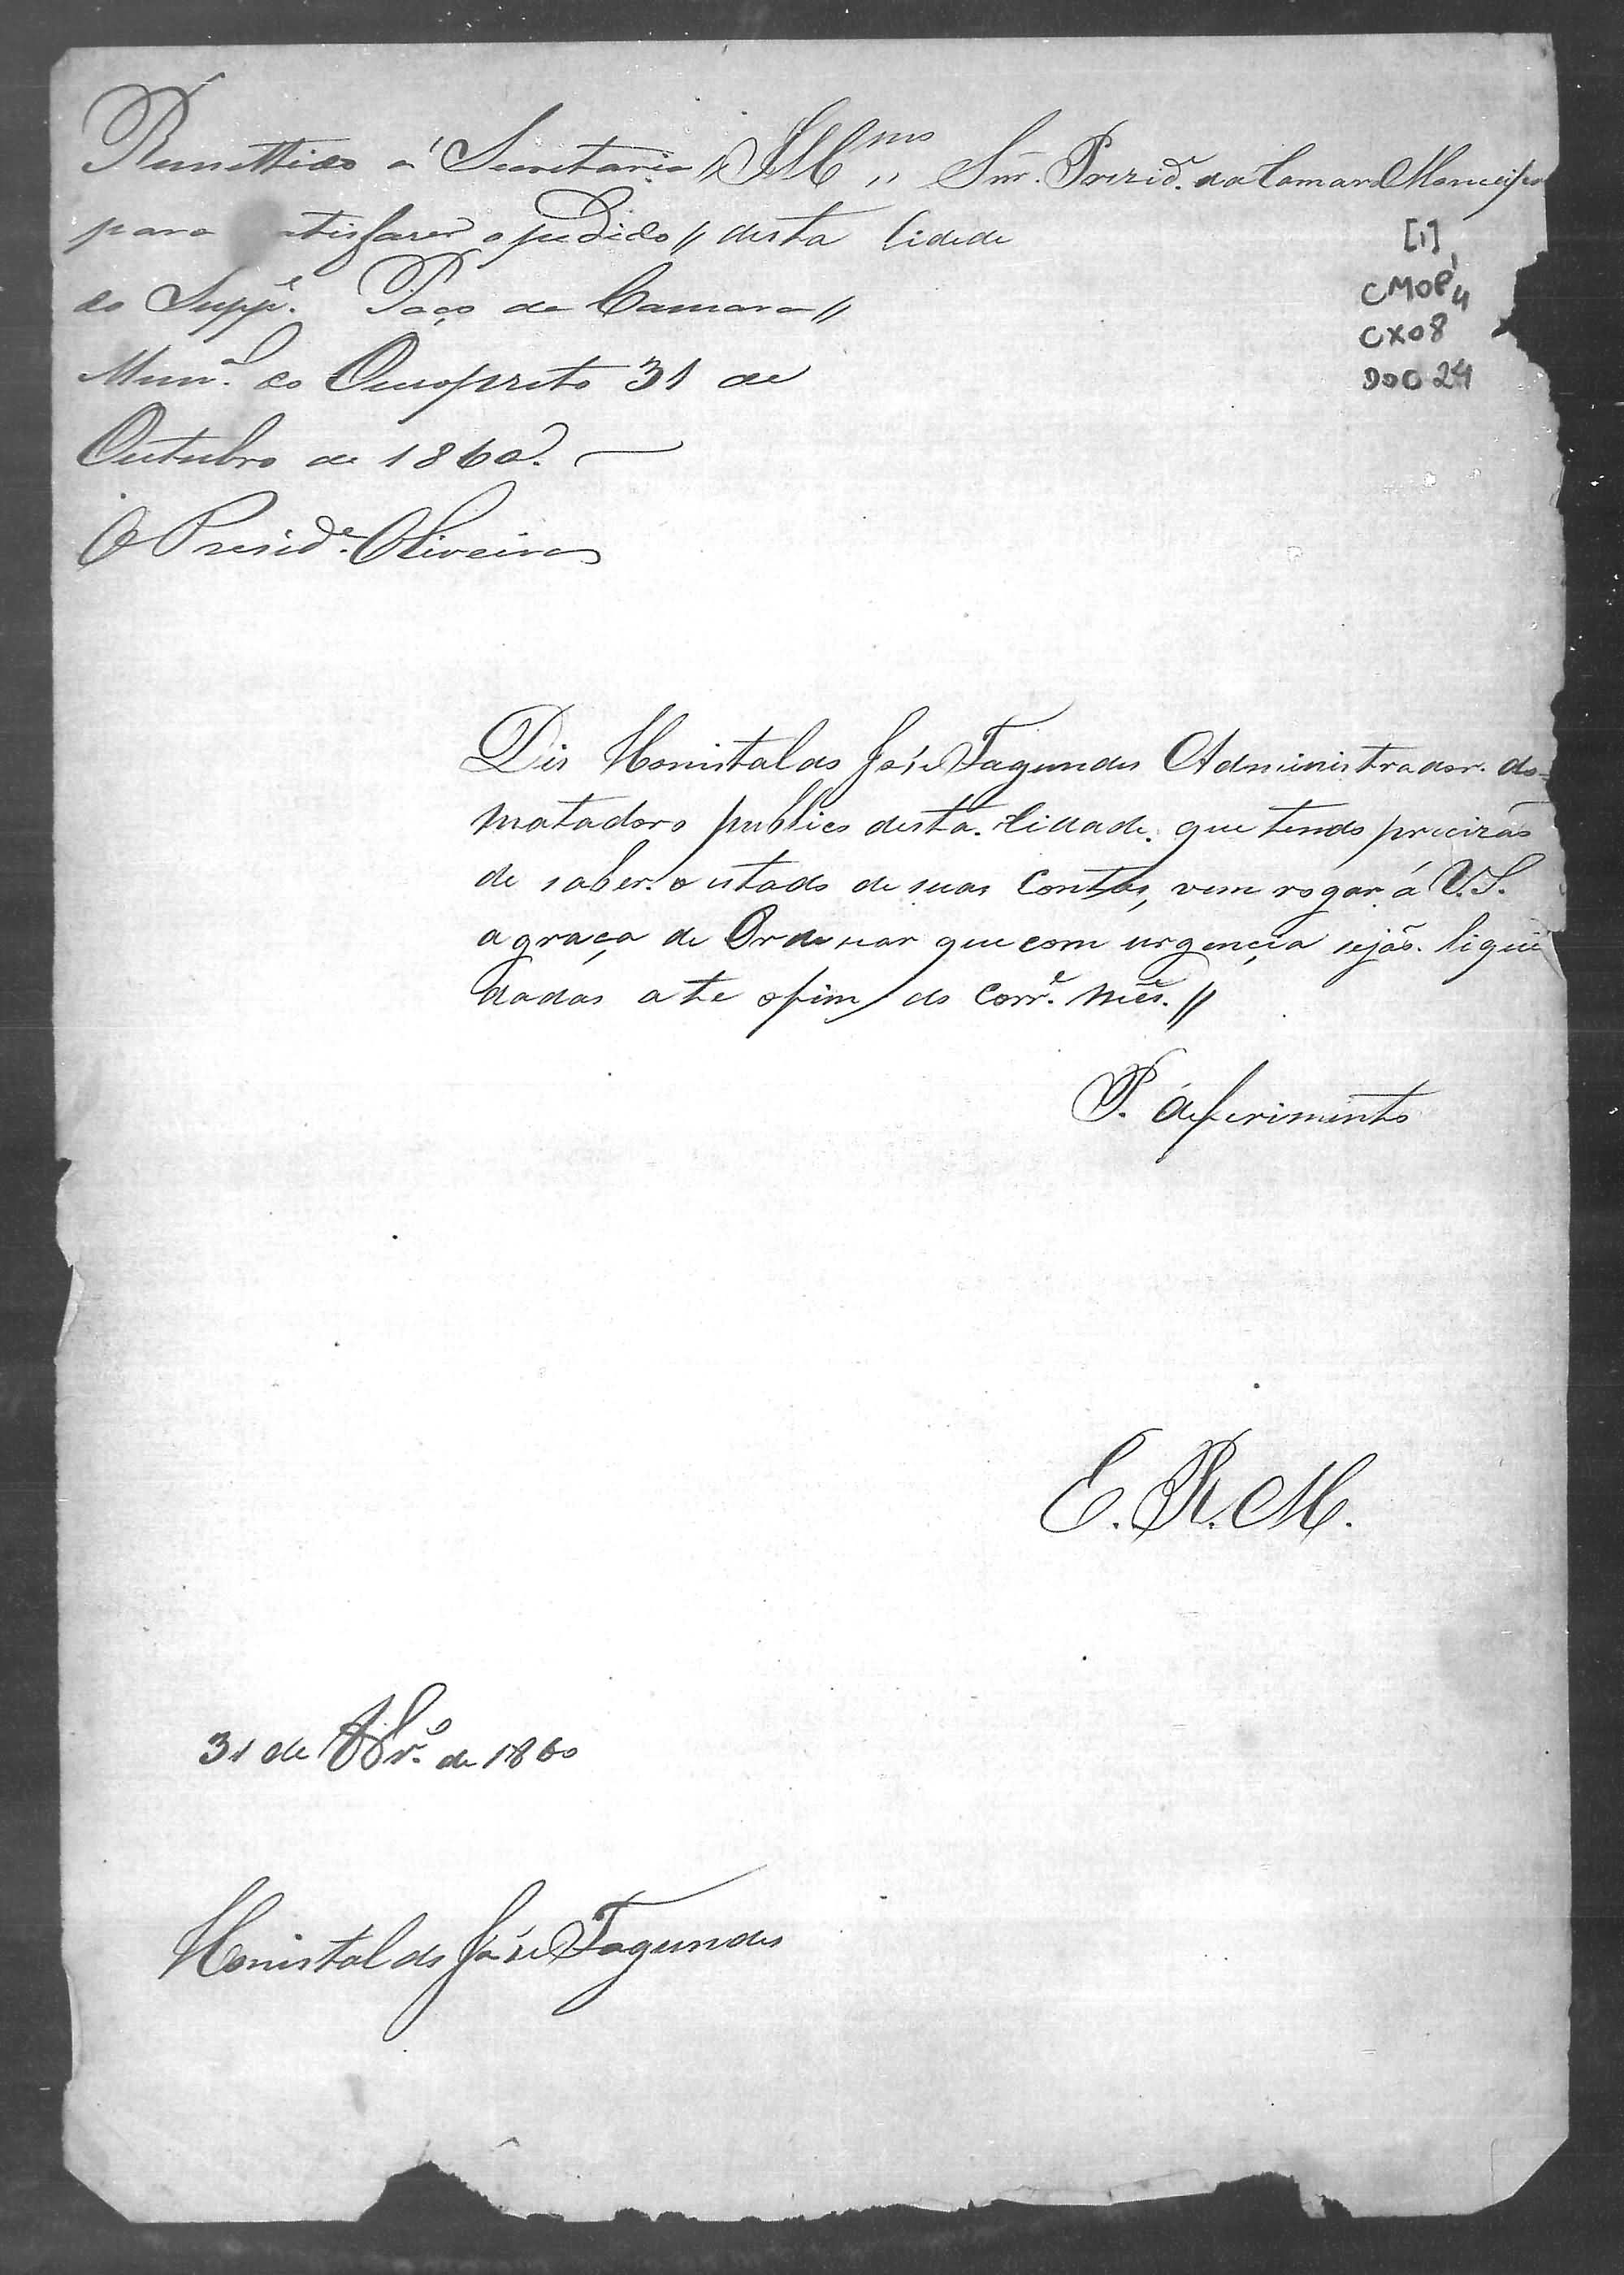 Remettido á Secretaria // Illmo Snr. Prezide. da Camara Monecipal
para satisfazer o pedido // desta Cidade
do Suppe. Paço da Camara //
Munal. do Ouropreto 31 de
Outubro de 1860. —
O Preside. Oliveira
[1]
CMOP 4
CX08
DOC 24
Dis Honistaldo José Fagundes Administrador. do
matadoro publico desta. Cidade. que tendo precizão
de saber. o estado de suas Contas, vem rogar á V.S.
a graça de Ordenar que com urgencia sejão. liqui
dadas ate o fim do Corre. mês. //
P. deferimento
E. R. M.
31 de 8bro. de 1860
Honistaldo José Fagundes